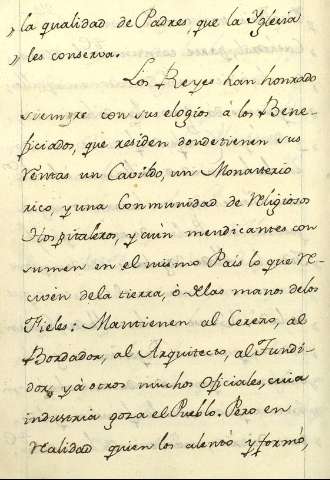 „ la qualidad de Padres, que la Yglesia
„ les conserva.
Los Reyes han honrado
siempre con sus elogios à los Bene-
ficiados, que residen donde tienen sus
Rentas un Cavildo, un Monasterio
rico, y una Conmunidad de Religiosos
Hospitaleros, y aùn mendicantes con
sumen en el mismo Païs lo que re-
civèn de la tierra, ò de las manos de los
Fieles: Mantienen al Cerero, al
Bordador, al Arquitecto, al Fundi-
dor, y à otros muchos Oficiales, cuia
industria goza el Pueblo. Pero en
realidad quien los alentò y formò,